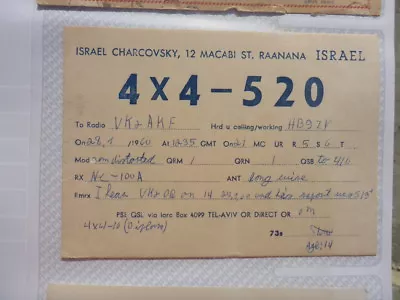 ISRAEL CHARCOVSKY, 12 MACABI ST. RAANANA ISRAEL
4X4-520
To Radio VK2AKF Hrd u calling/working HB9ZV
On 28.1 1960 At 1235 GMT On 21 MC UR R 5 S 6 T
Mod QRM 1 QRN 1 QSB to 4/6
RX NC-100A ANT long wire
Fmrx I hear VK2 on 14 and his report was 5
PSE QSL via Iarc Box 4099 TEL-AVIV OR DIRECT OR
4X4-10 (Diplom) 73s
Age: 14